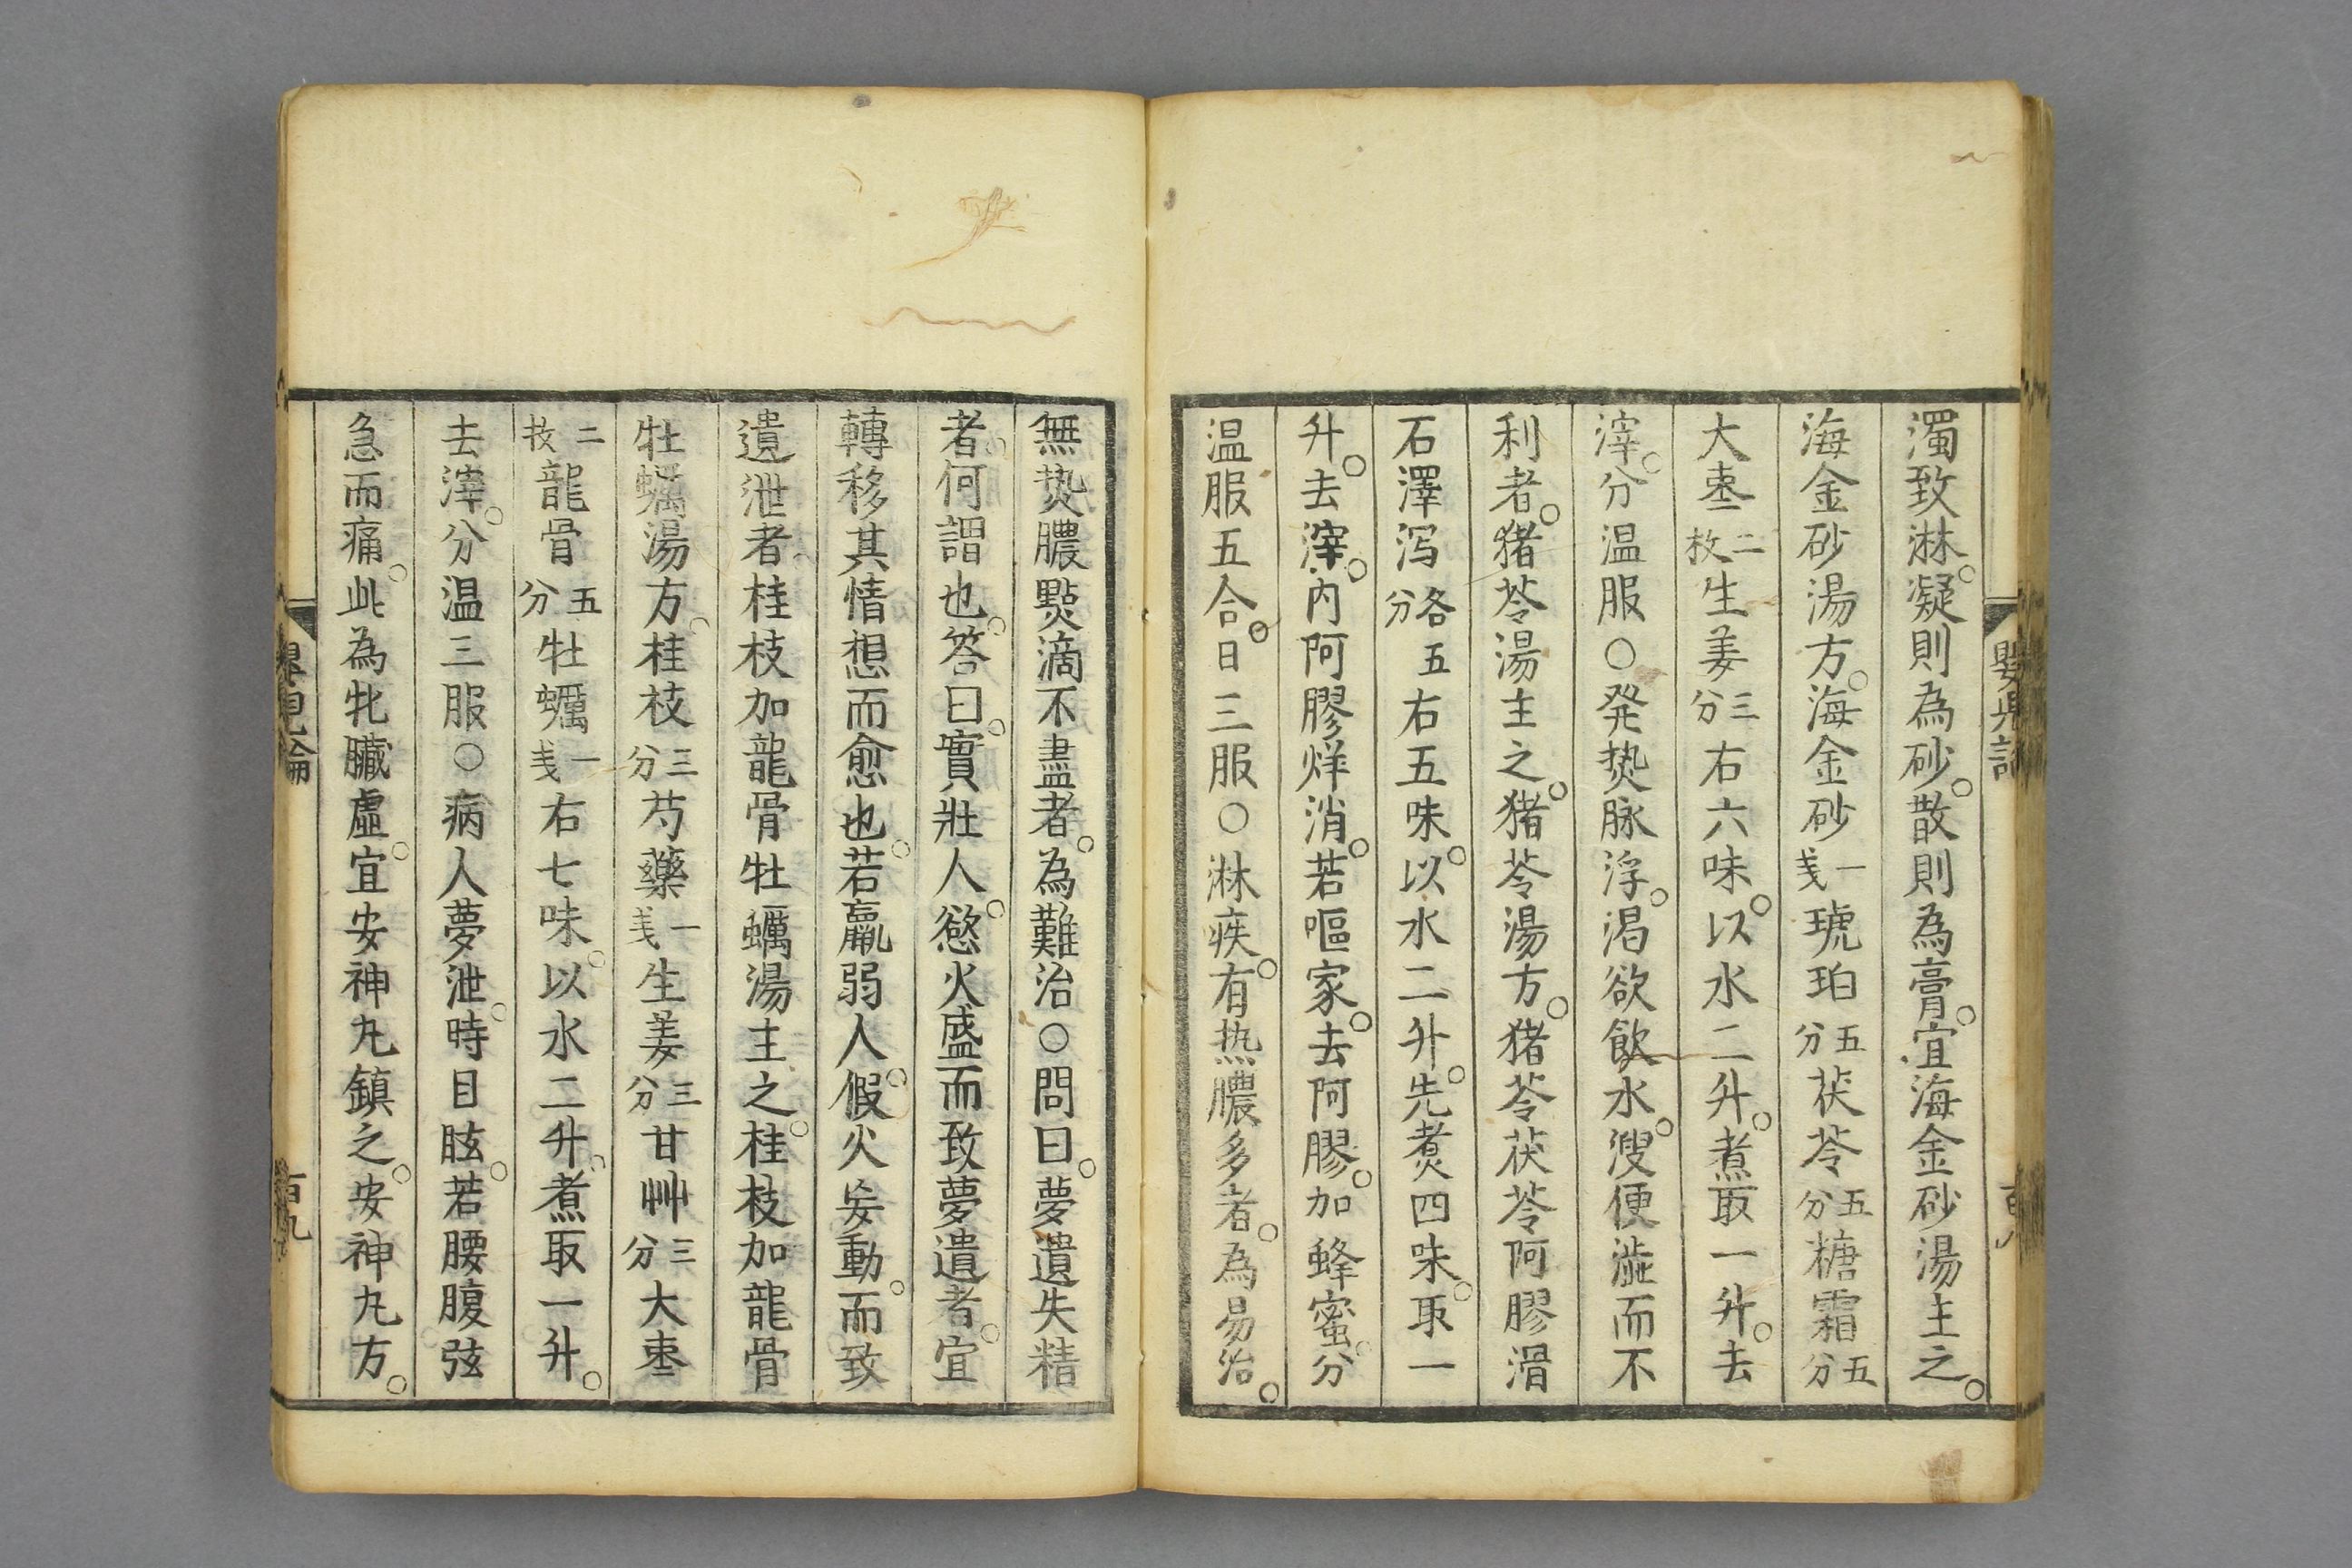 濁致淋。凝則為砂。散則為膏。宜海金砂湯主之。
海金砂湯方。海金砂一戔琥珀五分茯苓五分糖霜五分
大枣二枚生姜三分右六味。以水二升。煮取一升。去
滓。分温服○発𤍠脉浮。渴欲飲水。溲便澁而不
利者。猪苓湯主之。猪苓湯方。猪苓茯苓阿膠滑
石澤泻各五分右五味。以水二升。先煮四味。取一
升。去滓。内阿膠烊消。若嘔家。去阿膠。加蜂蜜。分
温服五合。日三服○淋疾。有热膿多者。為易治。
無𤍠膿㸃滴不盡者。為難治○問曰。夢遺失精
者。何謂也。答曰。實壯人。慾火盛而致夢遺者。宜
轉移其情想而愈也。若羸弱人。假火妄動。而致
遺泄者桂枝加龍骨牡蠣湯主之。桂枝加龍骨
牡蠣湯方。桂枝三分芍藥一戔生姜三分甘艸三分大枣
二枚龍骨五分牡蠣一戔右七味。以水二升。煮取一升。
去滓。分温三服○病人夢泄。時目眩。若腰腹弦
急而痛。此為牝臟虛。宜安神丸鎮之。安神丸方。
百九